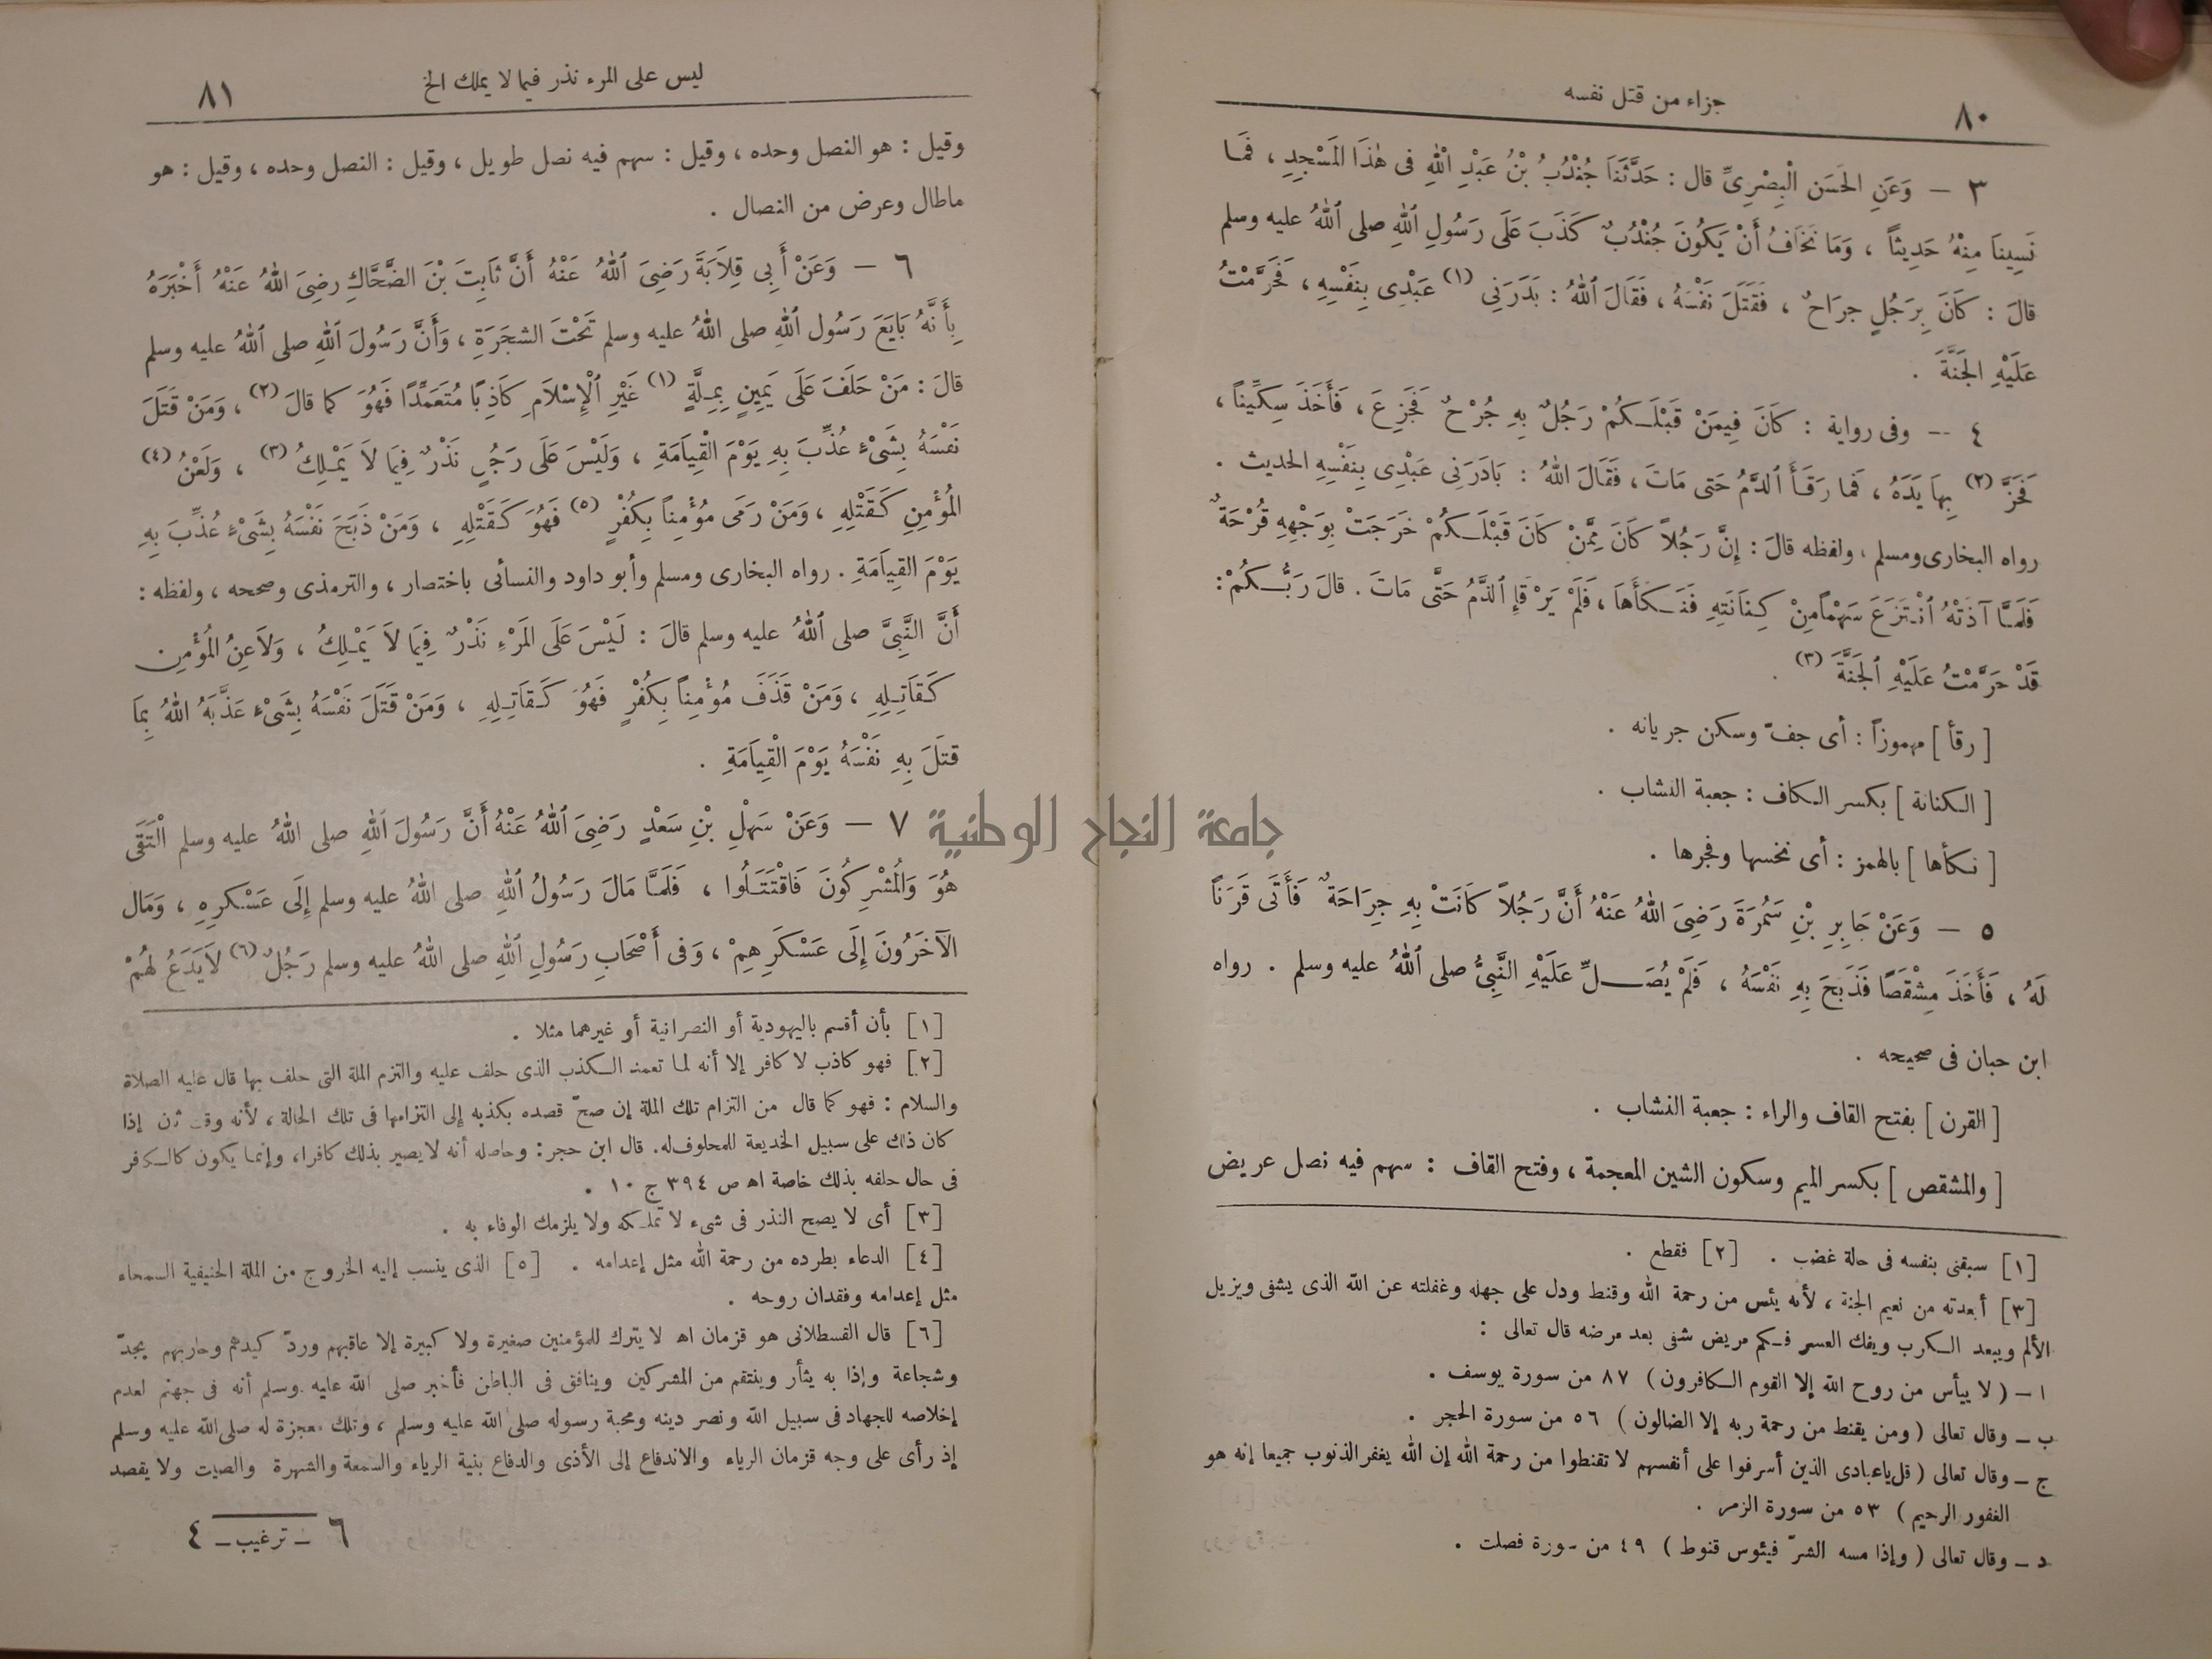 ٨٠
جزاء من قتل نفسه
٣ — وَعَنِ الحَسَنِ الْبِصْرِىِّ قال : حَدَّثَنَا جُنْدُبُ بْنُ عَبْدِ اللهِ فى هٰذَا المَسْجِدِ ، فَمَا
نَسِيناَ مِنْهُ حَدِيثاً ، وَمَا نَخَافُ أَنْ يَكُونَ جُنْدُبٌ كَذَبَ عَلَى رَسُولِ اللهِ صلى اللهُ عليه وسلم
قالَ : كَانَ بِرَجُلٍ جرَاحٌ ، فَقَتَلَ نَفْسَهُ ، فَقَالَ اللهُ : بَدَرَنِى (١) عَبْدِى بِنَفْسِهِ ، فَحَرَّمْتُ
عَلَيْهِ الجَنَّةَ .
٤ -- وفى رواية : كَانَ فِيمَنْ قَبْلَكُمْ رَجُلٌ بِهِ جُرْحٌ فَجَزِعَ ، فَأَخَذَ سِكِّيناً ،
فَحَزَّ (٢) بِهاَ يَدَهُ ، فَما رَقَأَ الدَّمُ حَتى مَاتَ ، فَقَالَ اللهُ : بَادَرَنِى عَبْدِى بِنَفْسِهِ الحديث .
رواه البخارى ومسلم ، ولفظه قالَ : إِنَّ رَجُلاً كَانَ مِمَّنْ كَانَ قَبْلَكُمْ خَرَجَتْ بِوَجْهِهِ قُرْحَةٌ
فَلَمَّا آذَتْهُ انْتَزَعَ سَهْمًا مِنْ كِنَانَتِهِ فَنَكَأَهَا ، فَلَمْ يَرْقَإِ الدَّمُ حَتَّى مَاتَ . قالَ رَبُّكُمْ :
قَدْ حَرَّمْتُ عَلَيْهِ الجَنَّةَ (٣) .
[ رقأ ] مهموزاً : أى جفّ وسكن جريانه .
[ الكنانة ] بكسر الكاف : جعبة النشاب .
[ نكأها ] بالهمز : أى نخسها وفجرها .
٥ — وَعَنْ جَابِرِ بْنِ سَمُرَةَ رَضِىَ اللهُ عَنْهُ أَنَّ رَجُلاً كَانَتْ بِهِ جِرَاحَةٌ فَأَتَى قَرَنًا
لَهُ ، فَأَخَذَ مِشْقَصًا فَذَبَحَ بِهِ نَفْسَهُ ، فَلَمْ يُصَلِّ عَلَيْهِ النَّبِىُّ صلى اللهُ عليه وسلم . رواه
ابن حبان فى صحيحه .
[ القرن ] بفتح القاف والراء : جعبة النشاب .
[ والمشقص ] بكسر الميم وسكون الشين المعجمة ، وفتح القاف : سهم فيه نصل عريض
[١] سبقنى بنفسه فى حالة غضب . [٢] فقطع .
[٣] أبعدته من نعيم الجنة ، لأنه يئس من رحمة الله وقنط ودل على جهله وغفلته عن الله الذى يشفى ويزيل
الألم ويبعد الكرب ويفك العسر فكم مريض شفى بعد مرضه قال تعالى :
ا — ( لا ييأس من روح الله إلا القوم الكافرون ) ٨٧ من سورة يوسف .
ب — وقال تعالى ( ومن يقنط من رحمة ربه إلا الضالون ) ٥٦ من سورة الحجر .
ج — وقال تعالى ( قل ياعبادى الذين أسرفوا على أنفسهم لا تقنطوا من رحمة الله إن الله يغفر الذنوب جميعا إنه هو
الغفور الرحيم ) ٥٣ من سورة الزمر .
د — وقال تعالى ( وإذا مسه الشرّ فيئوس قنوط ) ٤٩ من سورة فصلت .
ليس على المرء نذر فيما لا يملك الخ
٨١
وقيل : هو النصل وحده ، وقيل : سهم فيه نصل طويل ، وقيل : النصل وحده ، وقيل : هو
ماطال وعرض من النصال .
٦ — وَعَنْ أَبِى قِلاَبَةَ رَضِىَ اللهُ عَنْهُ أَنَّ ثَابِتَ بْنَ الضَّحَّاكِ رضِىَ اللهُ عَنْهُ أَخْبَرَهُ
بِأَنَّهُ بَايَعَ رَسُول اللهِ صلى اللهُ عليه وسلم تَحْتَ الشجَرَةِ ، وَأَنَّ رَسُولَ اللهِ صلى اللهُ عليه وسلم
قالَ : مَنْ حَلَفَ عَلَى يَمِينٍ بِمِلَّةٍ (١) غَيْرِ الْإِسْلاَمِ كَاذِبًا مُتَعَمِّدًا فَهُوَ كما قالَ (٢) ، وَمَنْ قَتَلَ
نَفْسَهُ بِشَىْءٍ عُذِّبَ بِهِ يَوْمَ الْقِيَامَةِ ، وَلَيْسَ عَلَى رَجُلٍ نَذْرٌ فِيمَا لاَ يَمْلِكُ (٣) ، وَلَعْنُ (٤)
المُؤْمِنِ كَقَتْلِهِ ، وَمَنْ رَمَى مُؤْمِناً بِكُفْرٍ (٥) فَهُوَ كَقَتْلِهِ ، وَمَنْ ذَبَحَ نَفْسَهُ بِشَىْءٍ عُذِّبَ بِهِ
يَوْمَ القِيَامَةِ . رواه البخارى ومسلم وأبو داود والنسائى باختصار ، والترمذى وصححه ، ولفظه :
أَنَّ النَّبِىَّ صلى اللهُ عليه وسلم قالَ : لَيْسَ عَلَى المَرْءِ نَذْرٌ فِيمَا لاَ يَمْلِكُ ، وَلاَعِنُ المُؤْمِنِ
كَقَاتِلِهِ ، وَمَنْ قَذَفَ مُؤْمِناً بِكُفْرٍ فَهُوَ كَقَاتِلِهِ ، وَمَنْ قَتَلَ نَفْسَهُ بِشَىْءٍ عَذَّبَهُ اللهُ بِمَا
قتَلَ بِهِ نَفْسَهُ يَوْمَ الْقِيَامَةِ .
٧ — وَعَنْ سَهْلِ بْنِ سَعْدٍ رَضِىَ اللهُ عَنْهُ أَنَّ رَسُولَ اللهِ صلى اللهُ عليه وسلم الْتَقَى
هُوَ وَالمُشْرِكُونَ فَاقْتَتَلُوا ، فَلَمَّا مَالَ رَسُولُ اللهِ صلى اللهُ عليه وسلم إِلَى عَسْكرِهِ ، وَمَال
الآخَرُونَ إِلَى عَسْكَرِهِمْ ، وَفى أَصْحَابِ رَسُولِ اللهِ صلى اللهُ عليه وسلم رَجُلٌ (٦) لاَ يَدَعُ لَهُمْ
[١] بأن أقسم باليهودية أو النصرانية أو غيرهما مثلا .
[٢] فهو كاذب لا كافر إلا أنه لما تعمد الكذب الذى حلف عليه والتزم الملة التى حلف بها قال عليه الصلاة
والسلام : فهو كما قال من التزام تلك الملة إن صحّ قصده بكذبه إلى التزامها فى تلك الحالة ، لأنه إذا
كان ذلك على سبيل الخديعة للمحلوف له. قال ابن حجر : وحاصله أنه لا يصير بذلك كافرا ، وإنما يكون كالكافر
فى حال حلفه بذلك خاصة اه ص ٣٩٤ ج ١٠ .
[٣] أى لا يصح النذر فى شىء لا تملكه ولا يلزمك الوفاء به .
[٤] الدعاء بطرده من رحمة الله مثل إعدامه . [٥] الذى ينسب إليه الخروج من الملة الحنيفية السمحاء
مثل إعدامه وفقدان روحه .
[٦] قال القسطلانى هو قزمان اه لا يترك للمؤمنين صغيرة ولا كبيرة إلا عاقبهم وردّ كيدهم وحاربهم بجدّ
وشجاعة وإذا به يثأر وينتقم من المشركين وينافق فى الباطن فأخبر صلى الله عليه وسلم أنه فى جهنم لعدم
إخلاصه للجهاد فى سبيل الله ونصر دينه ومحبة رسوله صلى الله عليه وسلم ، وتلك معجزة له صلى الله عليه وسلم
إذ رأى على وجه قزمان الرياء والاندفاع إلى الأذى والدفاع بنية الرياء والسمعة والشهرة والصيت ولا يقصد
٦ — ترغيب — ٤
جامعة النجاح الوطنية